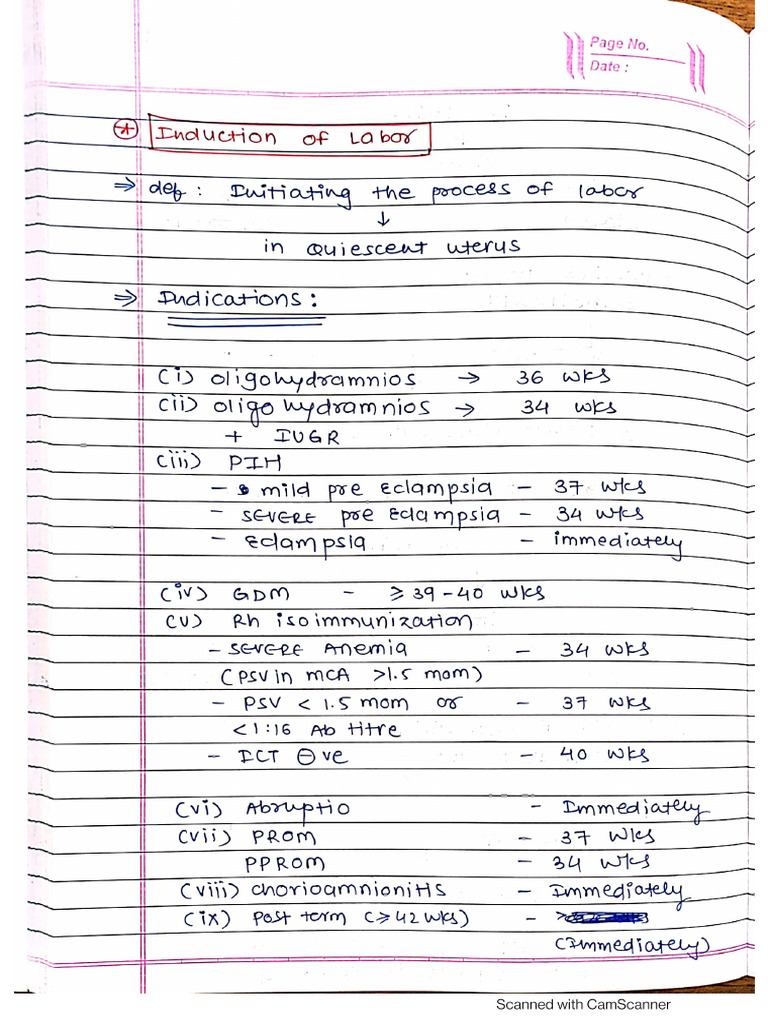 Page No.
Date :
* Induction of Labor
⇒ def : Initiating the process of labor
↓
in Quiescent uterus
⇒ Indications :
(i) oligohydramnios → 36 wks
(ii) oligohydramnios → 34 wks
+ IUGR
(iii) PIH
- mild pre Eclampsia - 37 wks
- SEVERE pre Eclampsia - 34 wks
- Eclampsia - immediately
(iv) GDM - ≥ 39-40 wks
(v) Rh isoimmunization
- SEVERE Anemia - 34 wks
(PSV in MCA >1.5 mom)
- PSV < 1.5 mom or - 37 wks
<1:16 Ab titre
- ICT ⊖ve - 40 wks
(vi) Abruptio - Immediately
(vii) PROM - 37 wks
PPROM - 34 wks
(viii) chorioamnionitis - Immediately
(ix) Post term (≥42 wks) -
(Immediately)
Scanned with CamScanner